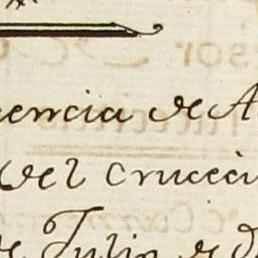 encia de A
del Crucei
de Julio de D